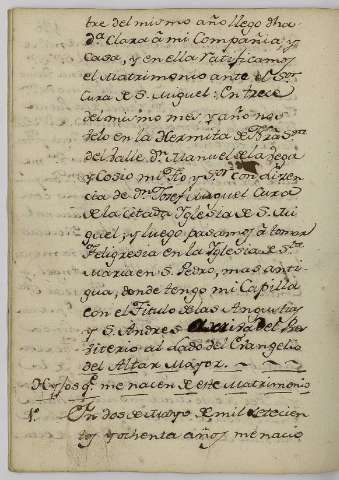 tre del mismo año llego dha
dª Clara â mi Compañia, y
Casa, y en ella Ratificamos
el Matrimonio ante el Sºr
Cura de S. Miguel: En trece
del mismo mes, y año nos
velo en la Hermita de Nrª Sʳª
del Valle, Dⁿ Manuel de la Vega
y Cosio mi tio, y Sºr con lizen
cia de Dⁿ Josef Miguel Cura
de la Citada Yglesia de S. Mi
guel, y luego pasamos â tomar
Feligresia en la Yglesia de Stª
Maria en S. Pedro, mas anti
gua, donde tengo mi Capilla
con el Titulo de las Angustias
y S. Andres del Pres
viterio al lado del Evangelio
del Altar Mayor.
Hijos q.ᵉ me nacen de este Matrimonio
1º En dos de Mayo de mil setecien
tos, y ochenta años, me nacio